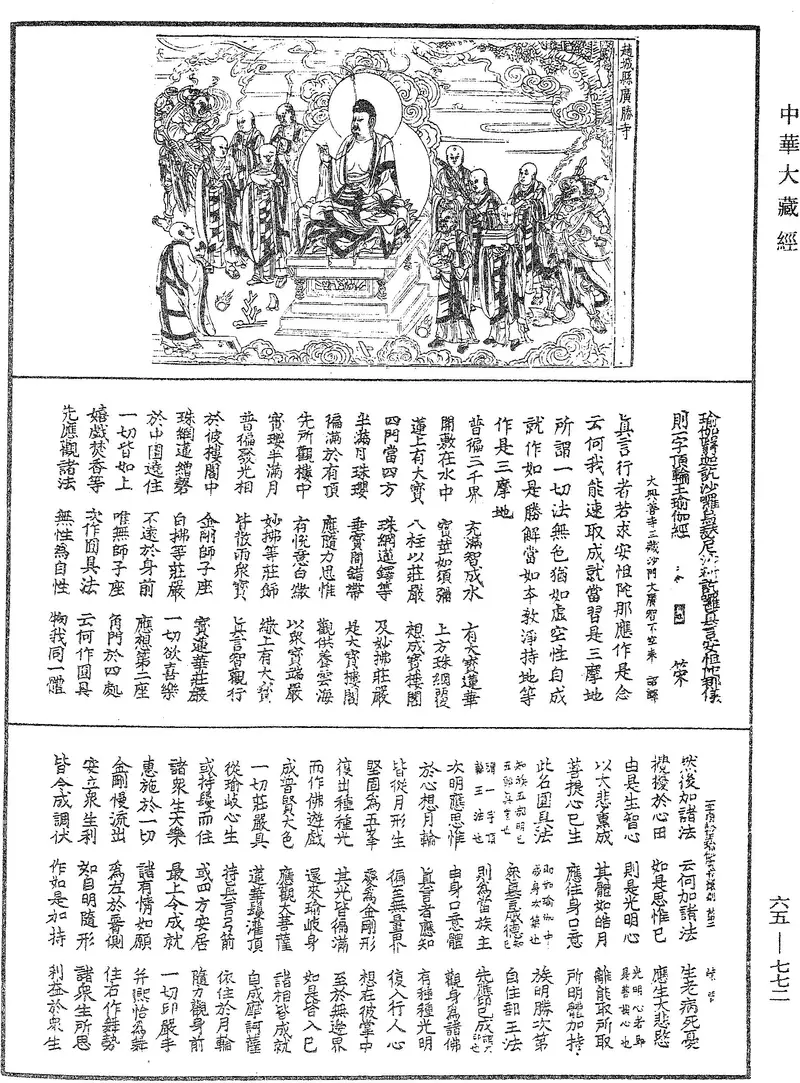 中華大藏經
六五—七七二
趙城縣廣勝寺
瑜伽翳迦訖沙囉烏瑟尼沙斫訖囉真言安怛陀那儀
則一字頂輪王瑜伽經
大興善寺三藏沙門大廣智不空奉 詔譯
真言行者若求安怛陀那應作是念
云何我能速取成就當習是三摩地
所謂一切法無色猶如虛空性自成
就作如是勝解當如本教淨持地等
作是三摩地
普徧三千界 充滿智成水 上有大寶蓮華
開敷在水中 寶華如須彌 上方珠網覆
蓮上有大寶 八柱以莊嚴 想成寶樓閣
四門當四方 珠網道鐸等 及妙拂莊嚴
半滿月珠瓔 垂寶間錯帶 是大寶樓閣
徧滿於有頂 應隨力思惟 觀供養雲海
先所觀樓中 有悅意白繖 以衆寶端嚴
寶瓔半滿月 妙拂等莊飾 繖上有大寶
普徧發光相 皆散雨衆寶 真言智觀行
於彼樓閣中 金剛師子座 寶蓮華莊嚴
珠網遶繒磬 白拂等莊嚴 一切欲喜樂
於中圓遶住 不遠於身前 應想第二座
一切皆如上 唯無師子座 角門於四處
嬉戲焚香等 次作圓具法 云何作圓具
先應觀諸法 無性為自性 物我同一體
然後加諸法 云何加諸法 生老病死憂
擾於心田 如是思惟已 應生大悲愍
由是生智心 則是光明心 光明心者即是菩提心也
以大悲熏成 其體如皓月 離能取所取
菩提心已生 應住身口意 所明體加持
此名圓具法 即於瑜伽中成身大集也 族明勝次第
如族五部明王五部真言也 衆真言威德 自住部王法
謂一字頂輪王法也 則為當族主 先應印已成
次明應思惟 由身口意體 觀身為諸佛
於心想月輪 真言者應知 有種種光明
皆從月形生 徧至無量界 復入行人心
堅固為五峯 變為金剛形 想在彼掌中
復出種種光 其光皆徧滿 至於無邊界
而作佛遊戲 還來瑜岐身 如是皆入已
成普賢大色 應觀大菩薩 諸相皆成就
一切莊嚴具 蓮華鬘灌頂 自成摩訶薩
從瑜岐心生 持真言弓箭 依住於月輪
或持鬘而住 或四方安居 隨力觀身前
諸衆生大樂 最上令成就 一切印嚴手
惠施於一切 諸有情如願 并熙怡為舞
金剛慢流出 為左於側 住右作舞勢
安立衆生利 知自明隨形 諸衆生所思
皆令成調伏 作如是加持 利益於衆生